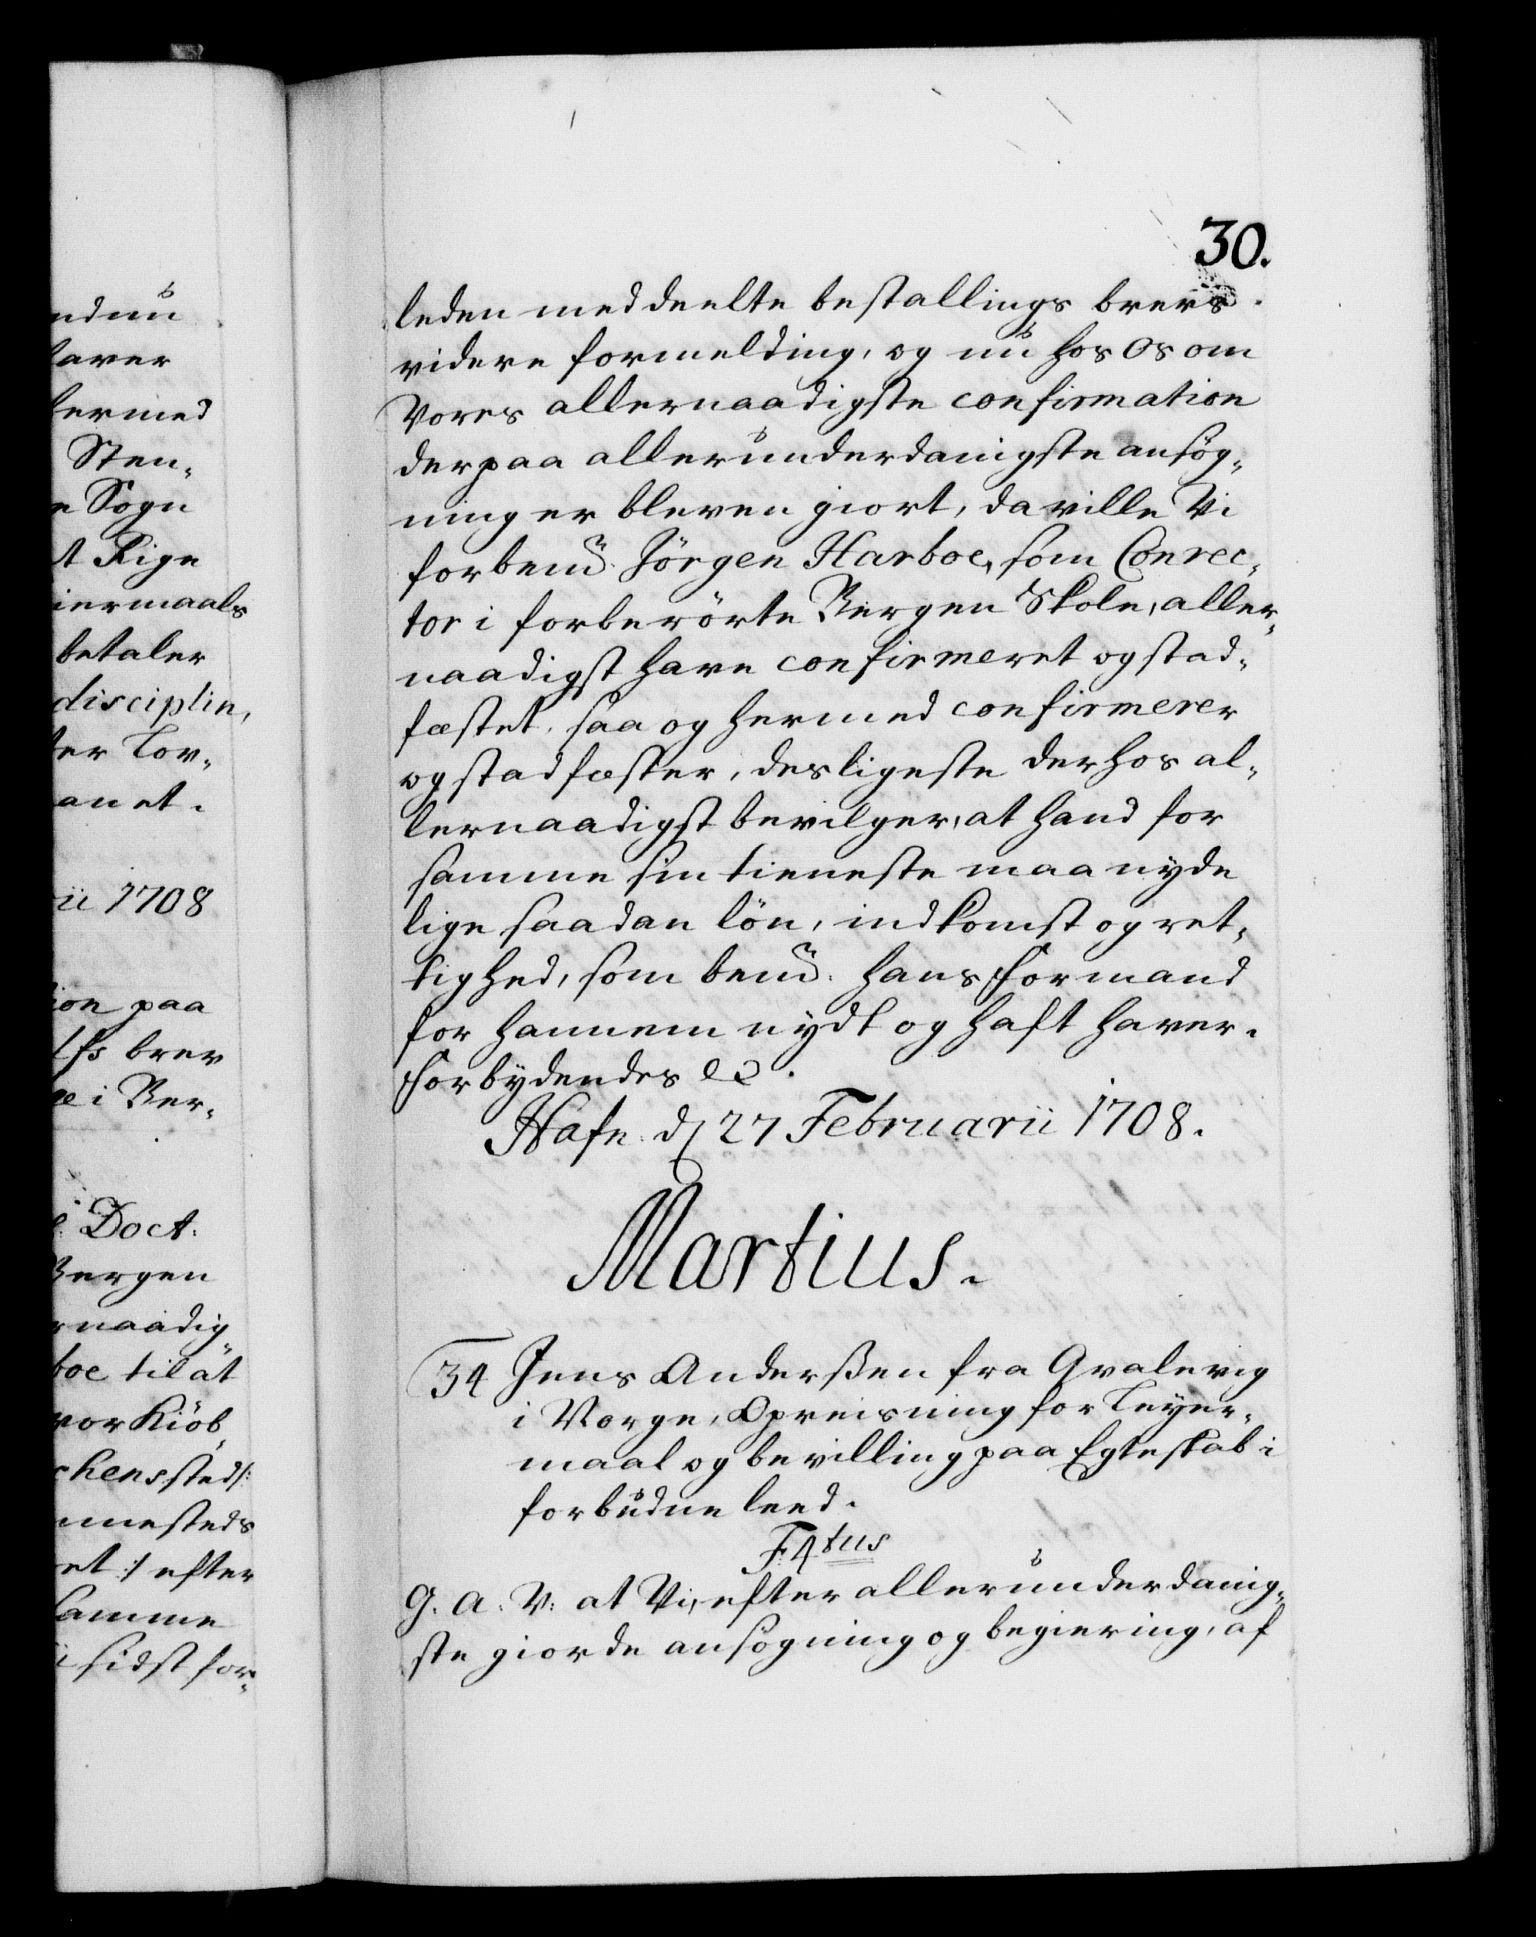 30.
leden meddeelte bestallings brevs
videre formelding, og nu hos Os om
Vores allernaadigste confirmation
derpaa allerunderdanigste ansøg-
ning er bleven giort, da ville Vi
forbemd. Jörgen Harboe, som Conrec-
tor i forberørte Bergen Skole, aller-
naadigst have confirmeret og stad-
fæstet, saa og hermed confirmerer
og stadfæster, desligeste derhos al-
lernaadigst bevilger, at hand for
samme sin tieneste maa nyde
lige saadan lön, indkomst og ret-
tighed, som bemd. hans Formand
for hannem nydt og haft haver.
Forbydendes &c.
Hafn. d 27 Februarii 1708.
Martius.
34 Jens Anderßen fra Qvalevig
i Norge, Opreisning for Leyer-
maal og bevilling paa Egteskab i
forbudne leed.
F. 4tus
G. A. V: at Vi, efter allerunderdanig-
ste giorde ansøgning og begiering, af
ndnu
haver
hermed
Sten-
e Sogn
t Rige
iermaals
betaler
disciplin,
ter Lov-
anet.
ii 1708
ion paa
brev
e i Ber-
Doct.
Bergen
rnaadig
boe til at
vor Kiöb
chens sted/:
nnesteds
et :/ efter
samme
i sidst for-